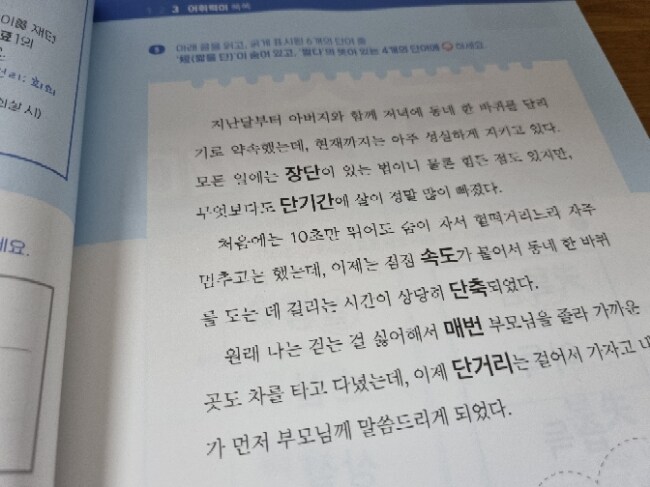 이름 재던
료 1의
회의 시)
1 2 3 어휘력이 쑥쑥
아래 글을 읽고, 굵게 표시된 6개의 단어 중
'短(짧을 단)'이 숨어 있고, '짧다'의 뜻이 있는 4개의 단어에 하세요.
지난달부터 아버지와 함께 저녁에 동네 한 바퀴를 달리
기로 약속했는데, 현재까지는 아주 성실하게 지키고 있다.
모든 일에는 장단이 있는 법이니 물론 힘든 점도 있지만,
무엇보다도 단기간에 살이 정말 많이 빠졌다.
처음에는 10초만 뛰어도 숨이 차서 헐떡거리느라 자주
멈추고는 했는데, 이제는 점점 속도가 붙어서 동네 한 바퀴
를 도는 데 걸리는 시간이 상당히 단축되었다.
원래 나는 걷는 걸 싫어해서 매번 부모님을 졸라 가까운
곳도 차를 타고 다녔는데, 이제 단거리는 걸어서 가자고 내
가 먼저 부모님께 말씀드리게 되었다.
세요.